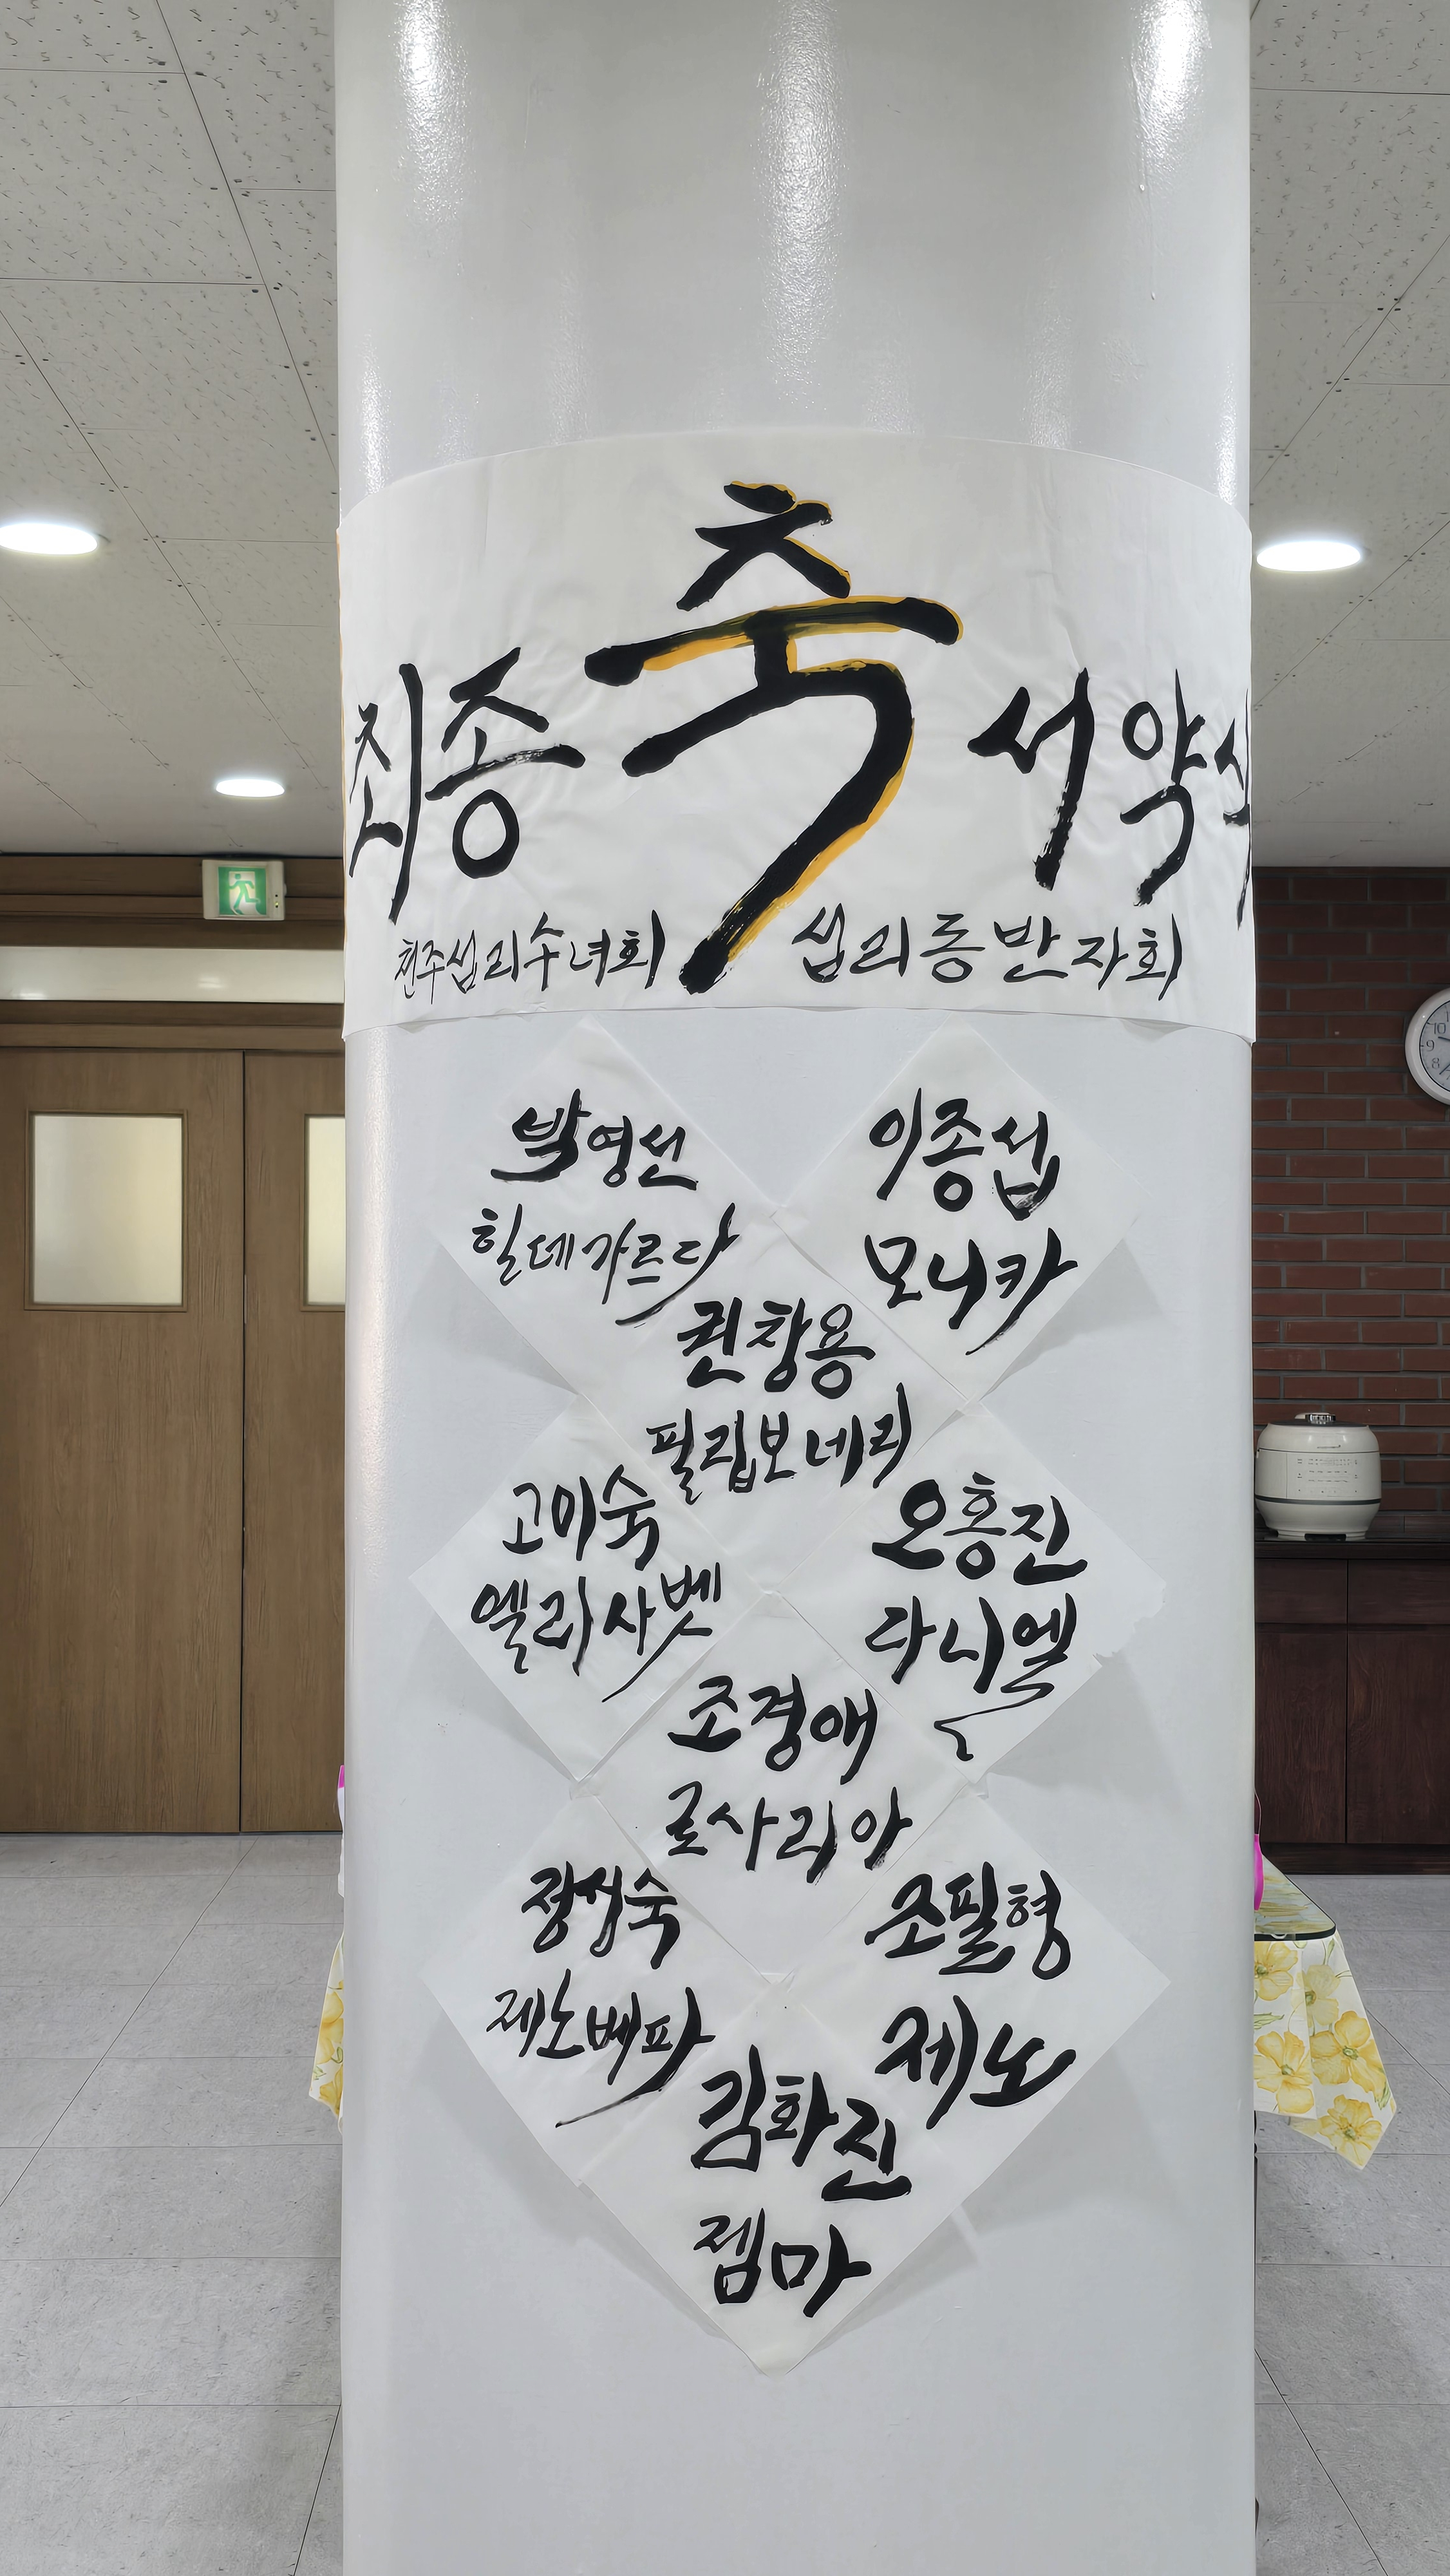 최종 축 서약식
천주섭리수녀회 섭리동반자회
박영선
힐데가르다
이종섭
모니카
권창용
필립보네리
고미숙
엘리사벳
오홍진
다니엘
조경애
로사리아
숙
제노베파
조필형
제노
김화진
젬마